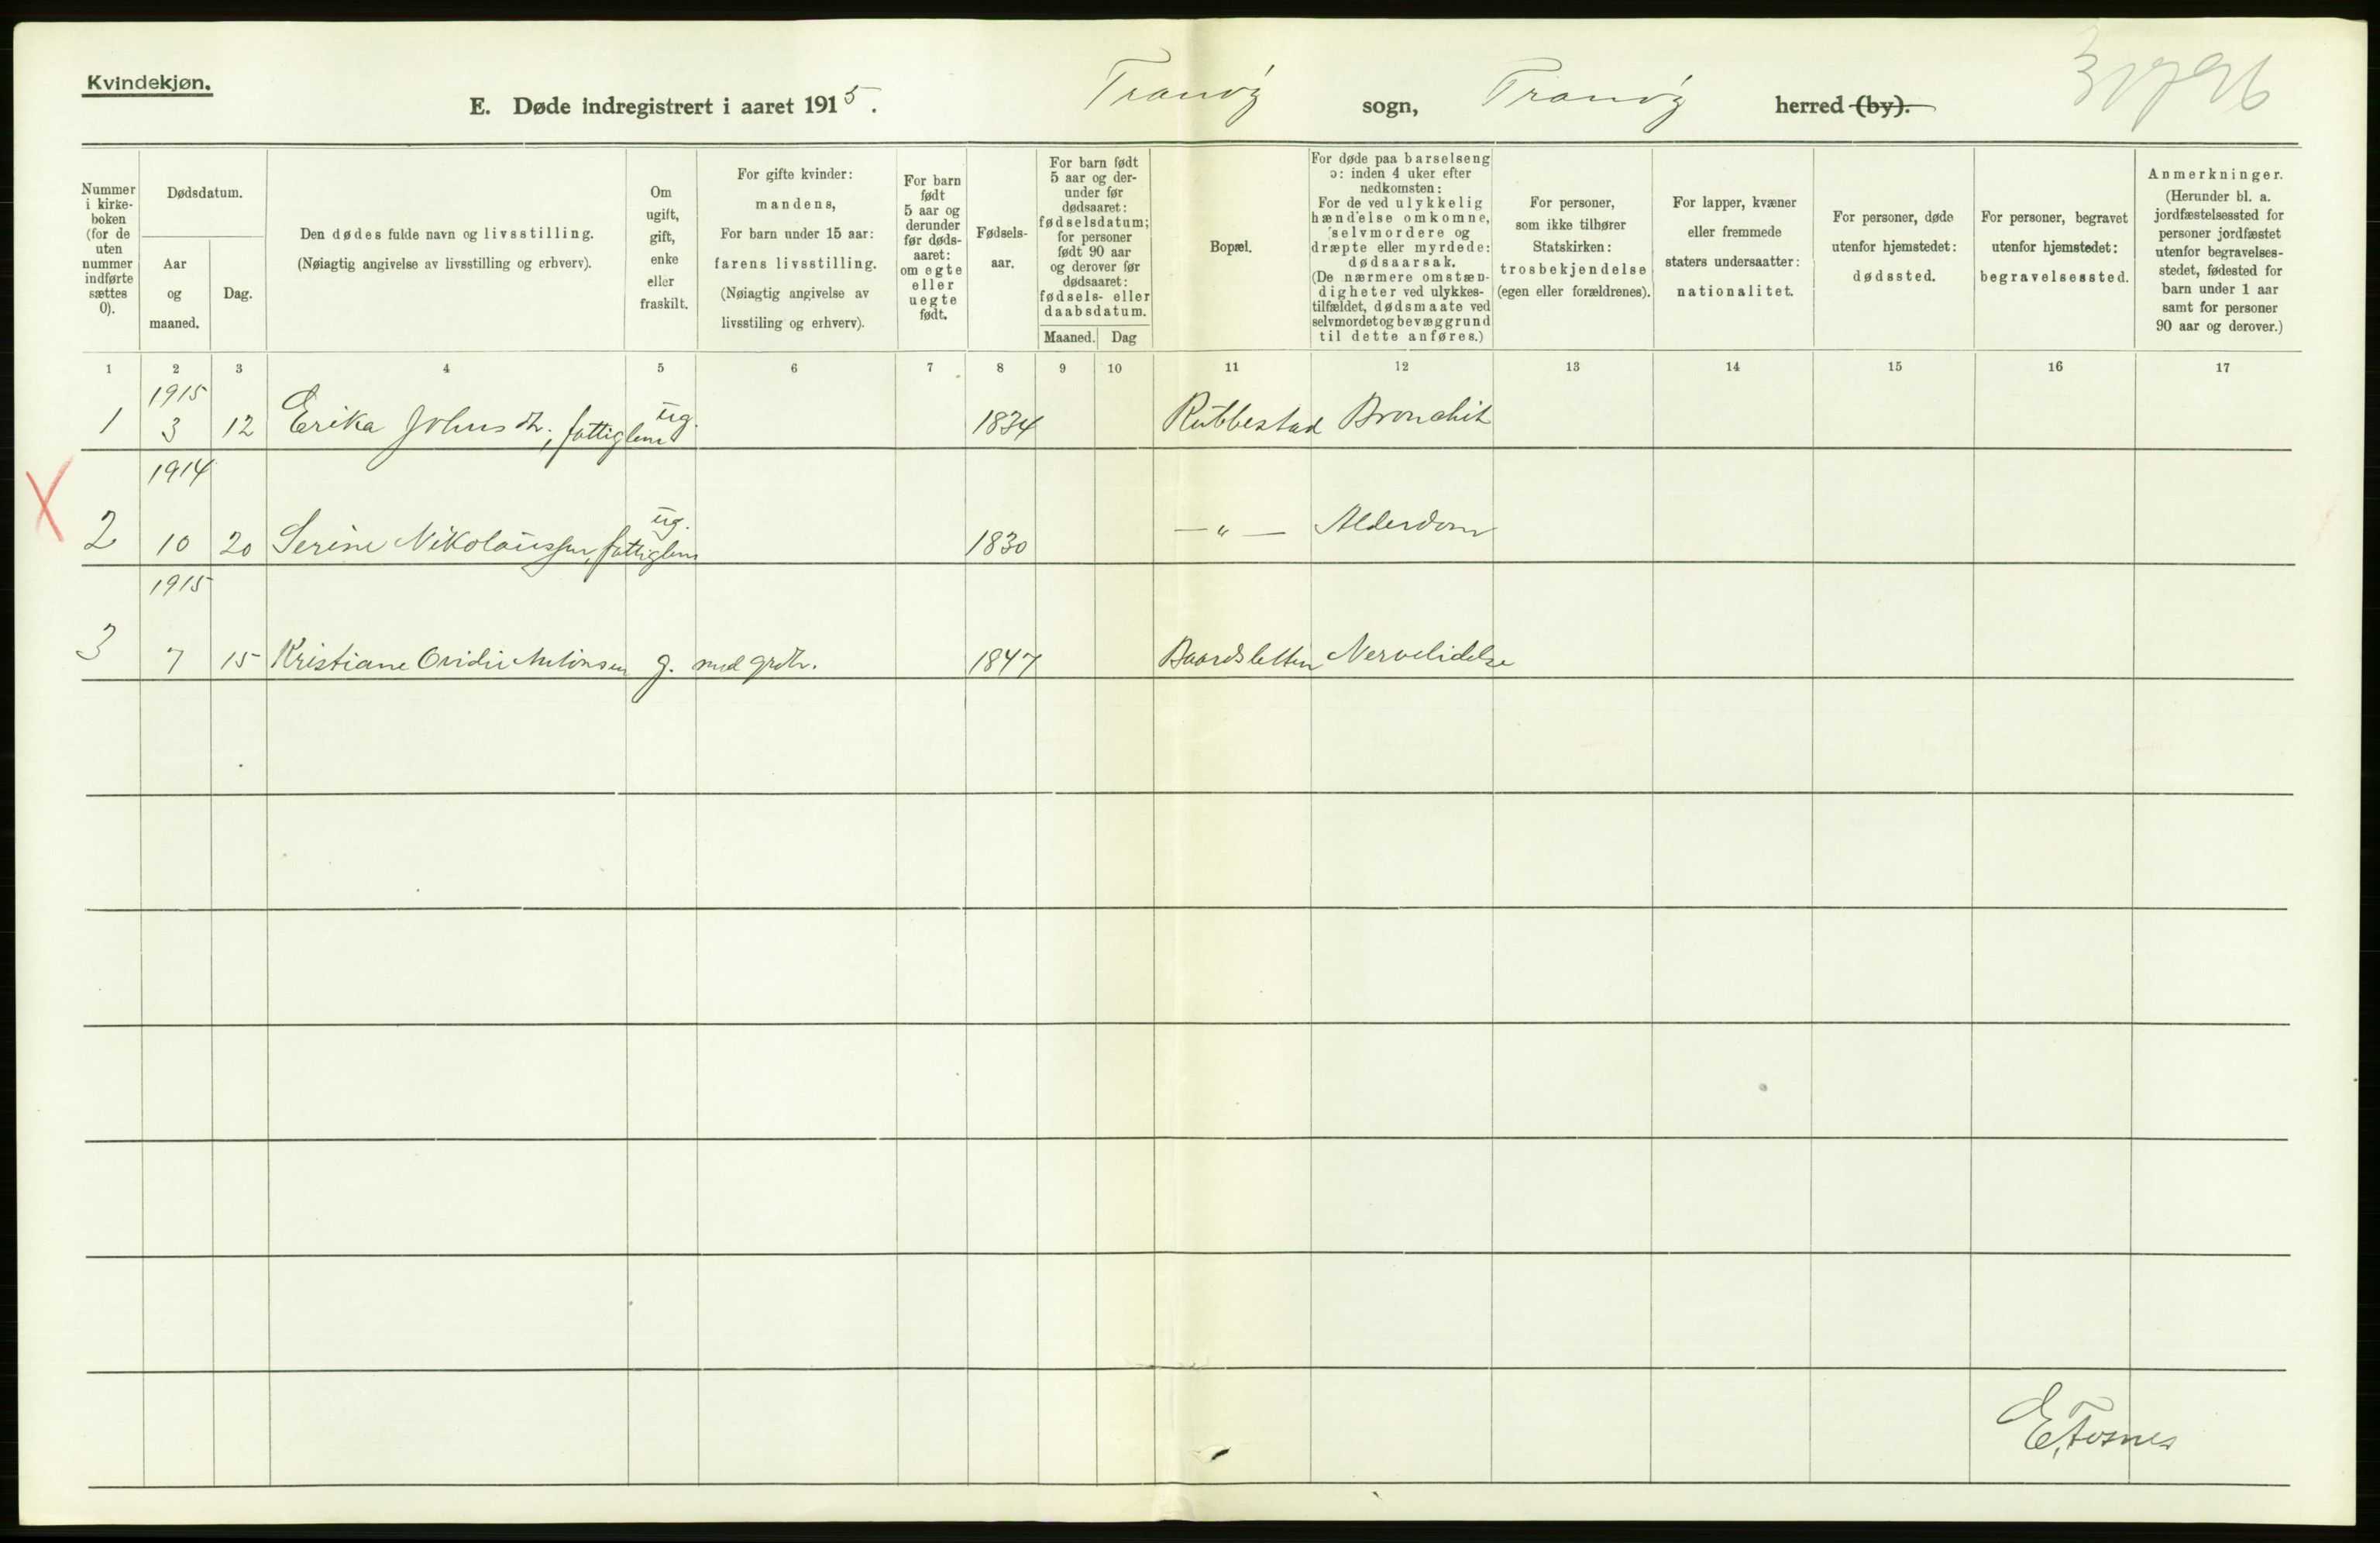 Kvindekjøn.
E. Døde indregistrert i aaret 1915. Tranøy sogn, Tranøy herred (by).
Nummer i kirke-boken (for de uten nummer indførte sættes 0).
Dødsdatum.
Aar og maaned.
Dag.
Den dødes fulde navn og livsstilling.
(Nøiagtig angivelse av livsstilling og erhverv).
Om ugift, gift, enke eller fraskilt.
For gifte kvinder:
mandens,
For barn under 15 aar:
farens livsstilling.
(Nøiagtig angivelse av
livsstiling og erhverv).
For barn født 5 aar og derunder før døds-aaret: om egte eller uegte født.
Fødsels-aar.
For barn født 5 aar og der-under før dødsaaret: fødselsdatum; for personer født 90 aar og derover før dødsaaret: fødsels- eller daabsdatum.
Maaned. Dag
Bopæl.
For døde paa barselseng
ɔ: inden 4 uker efter
nedkomsten:
For de ved ulykkelig
hændelse omkomne,
selvmordere og
dræpte eller myrdede:
dødsaarsak.
(De nærmere omstæn-
digheter ved ulykkes-
tilfældet, dødsmaate ved
selvmordet og bevæggrund
til dette anføres.)
For personer,
som ikke tilhører
Statskirken:
trosbekjendelse
(egen eller forældrenes).
For lapper, kvæner
eller fremmede
staters undersaatter:
nationalitet.
For personer, døde
utenfor hjemstedet:
dødssted.
For personer, begravet
utenfor hjemstedet:
begravelsessted.
Anmerkninger.
(Herunder bl. a.
jordfæstelsessted for
personer jordfæstet
utenfor begravelses-
stedet, fødested for
barn under 1 aar
samt for personer
90 aar og derover.)
1 2 3 4 5 6 7 8 9 10 11 12 13 14 15 16 17
1915
1 3 12 Erika Johnsdtr., fattiglem ug. 1834 Rubbestad Bronchit
1914
2 10 20 Serine Nikolaussen, fattiglem ug. 1830 — " — Alderdom
1915
3 7 15 Kristiane Ovidie Antonsen g. med grdbr. 1847 Baardsletten Nervelidelse
E. Fosnes